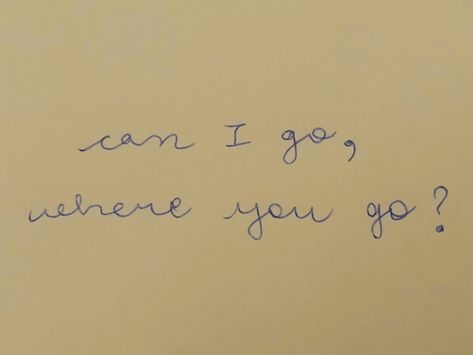 can I go,
where you go?